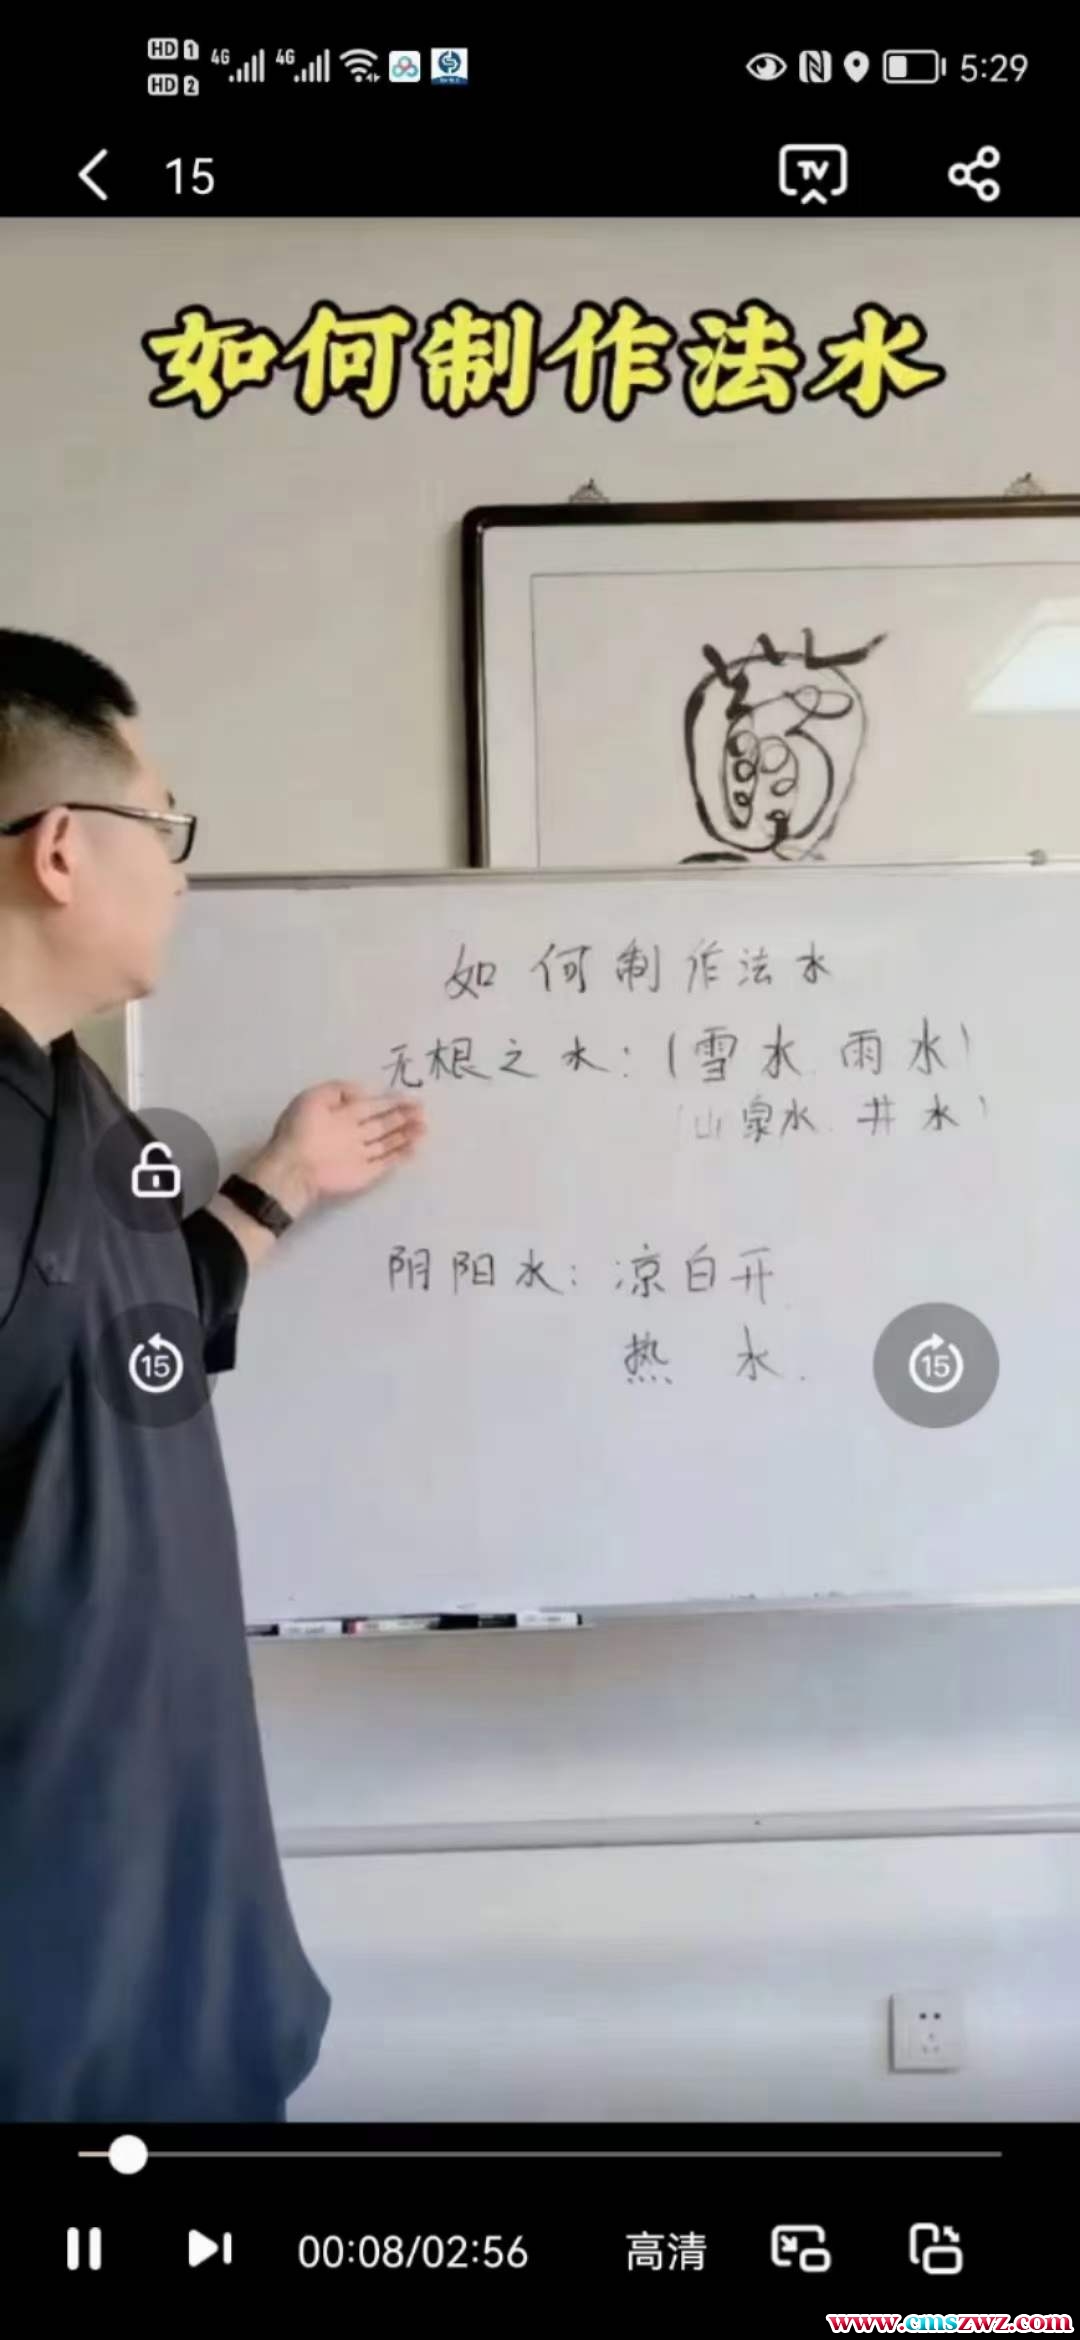 HD 1 4G 4G 5:29
HD 2
15
TV
如何制作法水
如何制作法水
无根之水：(雪水.雨水)
(山泉水.井水)
阴阳水：凉白开
热水.
15 15
00:08/02:56 高清
www.cmszwz.com